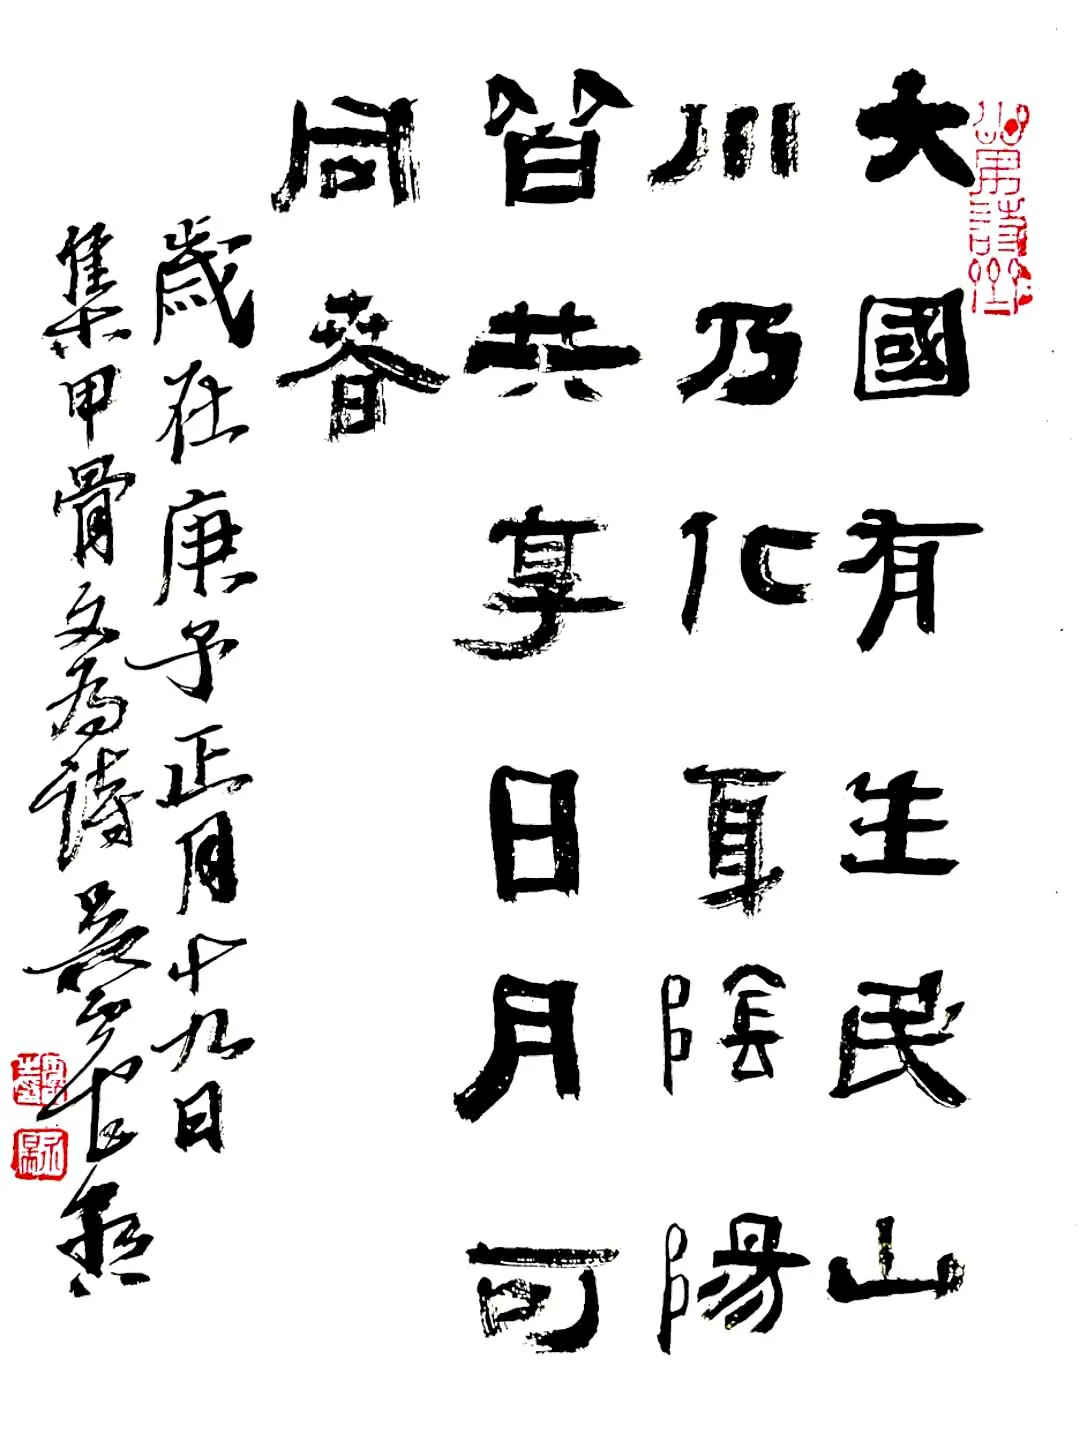 大國有生民山
川乃化夏陰陽
皆共享日月可
同春
歲在庚子正月十九日
集甲骨文為詩